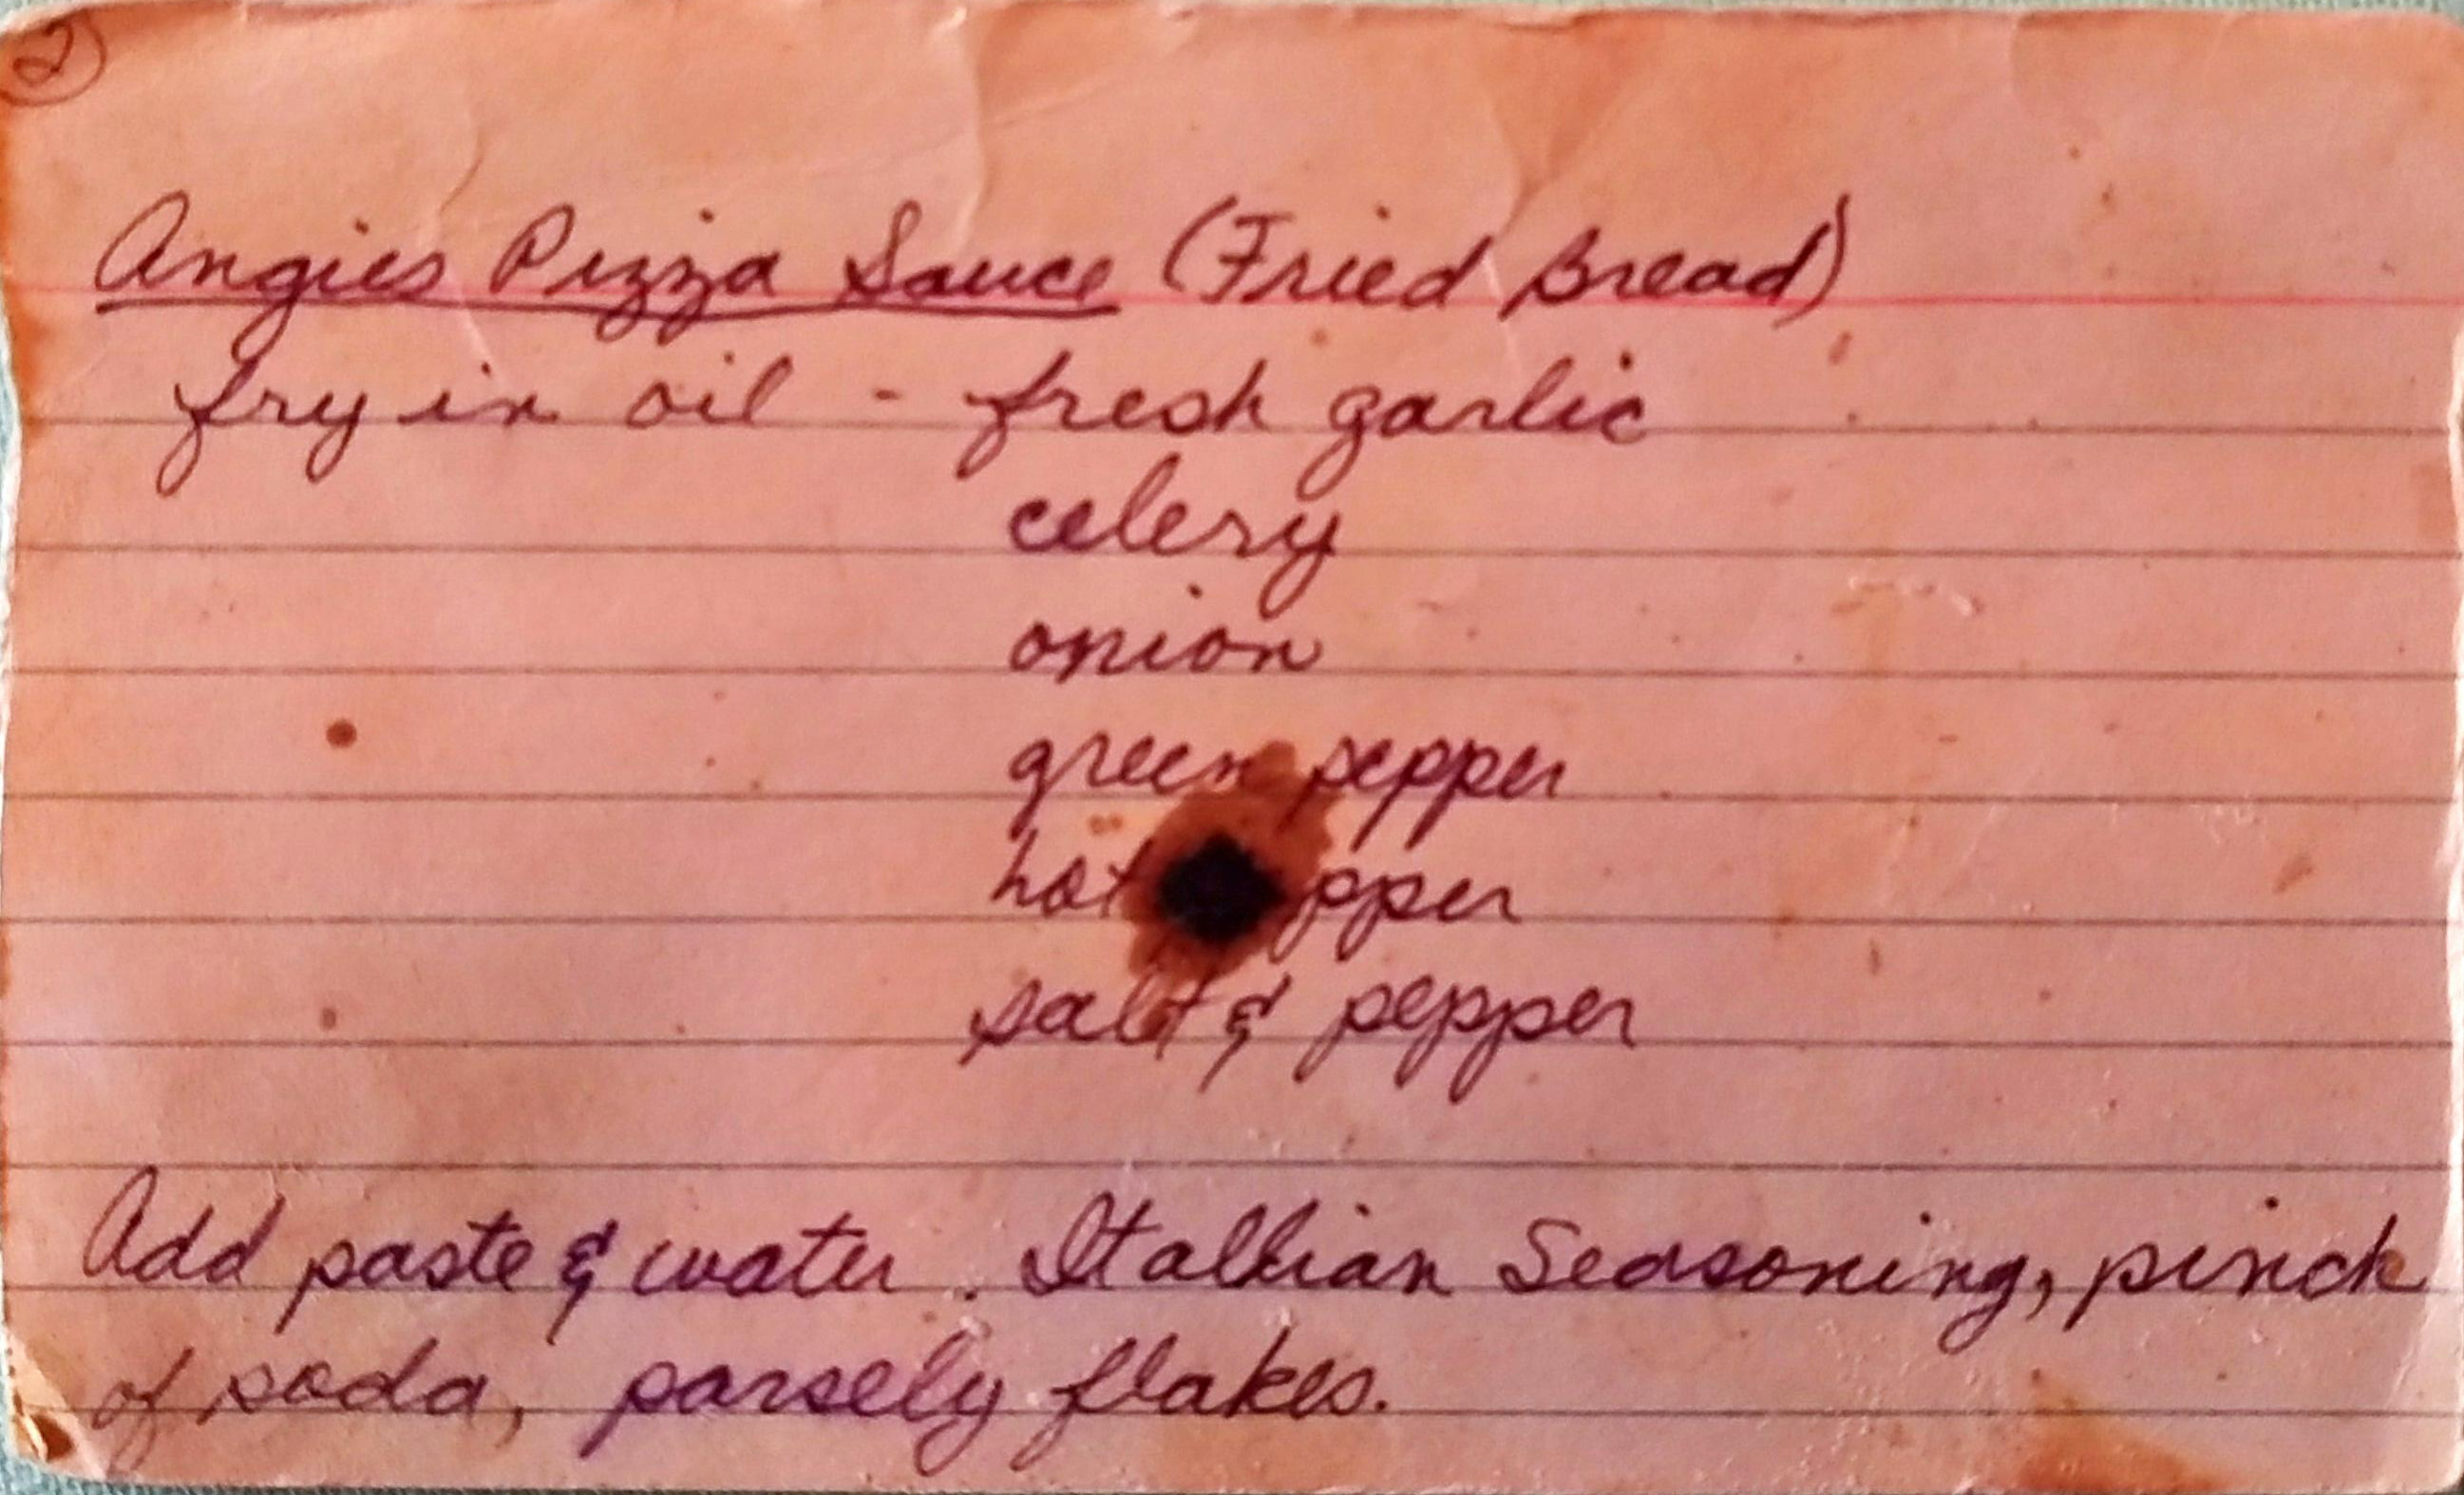 2
Angies Pizza Sauce (Fried Bread)
fry in oil - fresh garlic
celery
onion
green pepper
hot pper
salt & pepper
Add paste & water. Itallian Seasoning, pinch
of soda, parsely flakes.